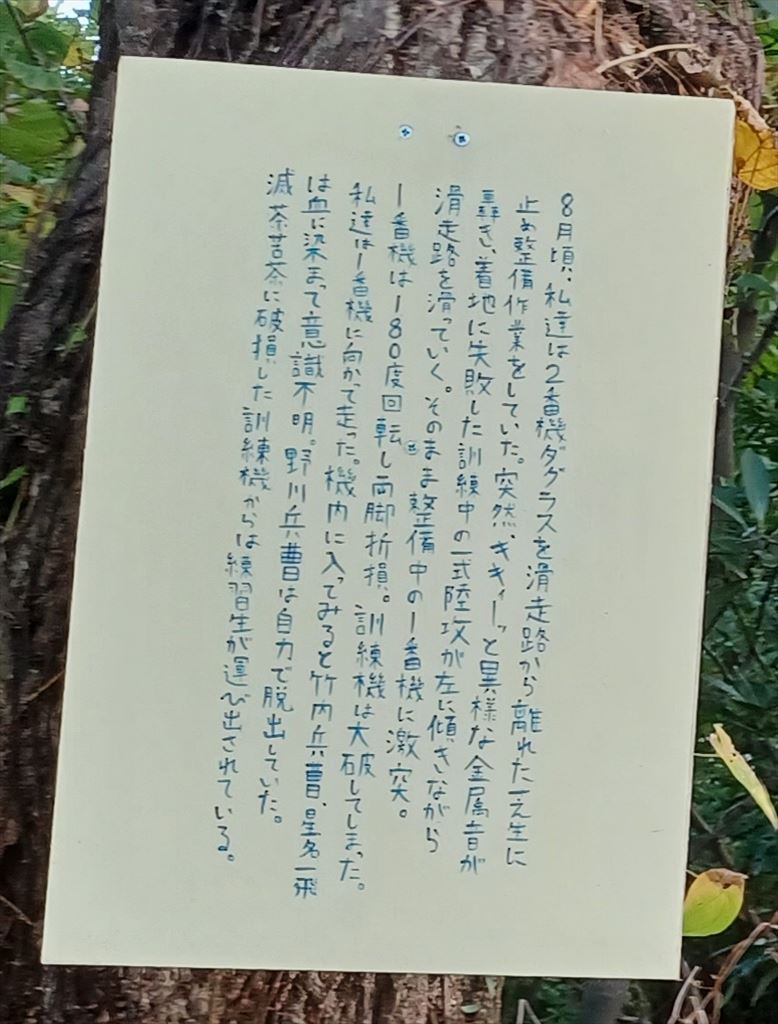 8月頃、私達は2番機ダグラスを滑走路から離れた芝生に
止め整備作業をしていた。突然、キキィーッと異様な金属音が
轟き、着地に失敗した訓練中の一式陸攻が左に傾きながら
滑走路を滑っていく。そのまま整備中の1番機に激突。
1番機は180度回転し両脚折損。訓練機は大破してしまった。
私達は1番機に向かって走った。機内に入ってみると竹内兵曹、星名一飛
は血に染まって意識不明。野川兵曹は自力で脱出していた。
滅茶苦茶に破損した訓練機からは練習生が運び出されている。